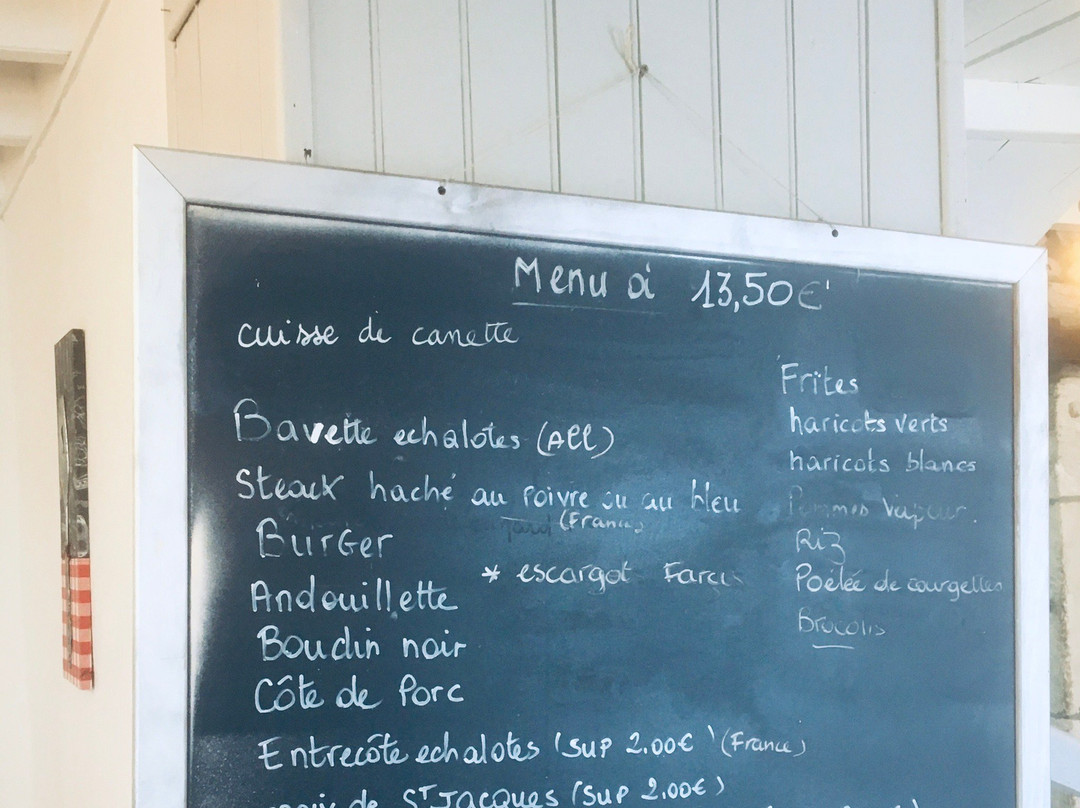 Menu à 13,50€
cuisse de canette
Bavette echalotes (All)
Steack haché au poivre ou au bleu
(France)
Burger
* escargot Farcis
Andouillette
Boudin noir
Côte de Porc
Entrecôte echalotes (sup 2.00€) (France)
de St Jacques (Sup 2.00€)
Frites
haricots verts
haricots blancs
Pommes Vapeur.
Riz
Poêlée de courgettes
Brocolis